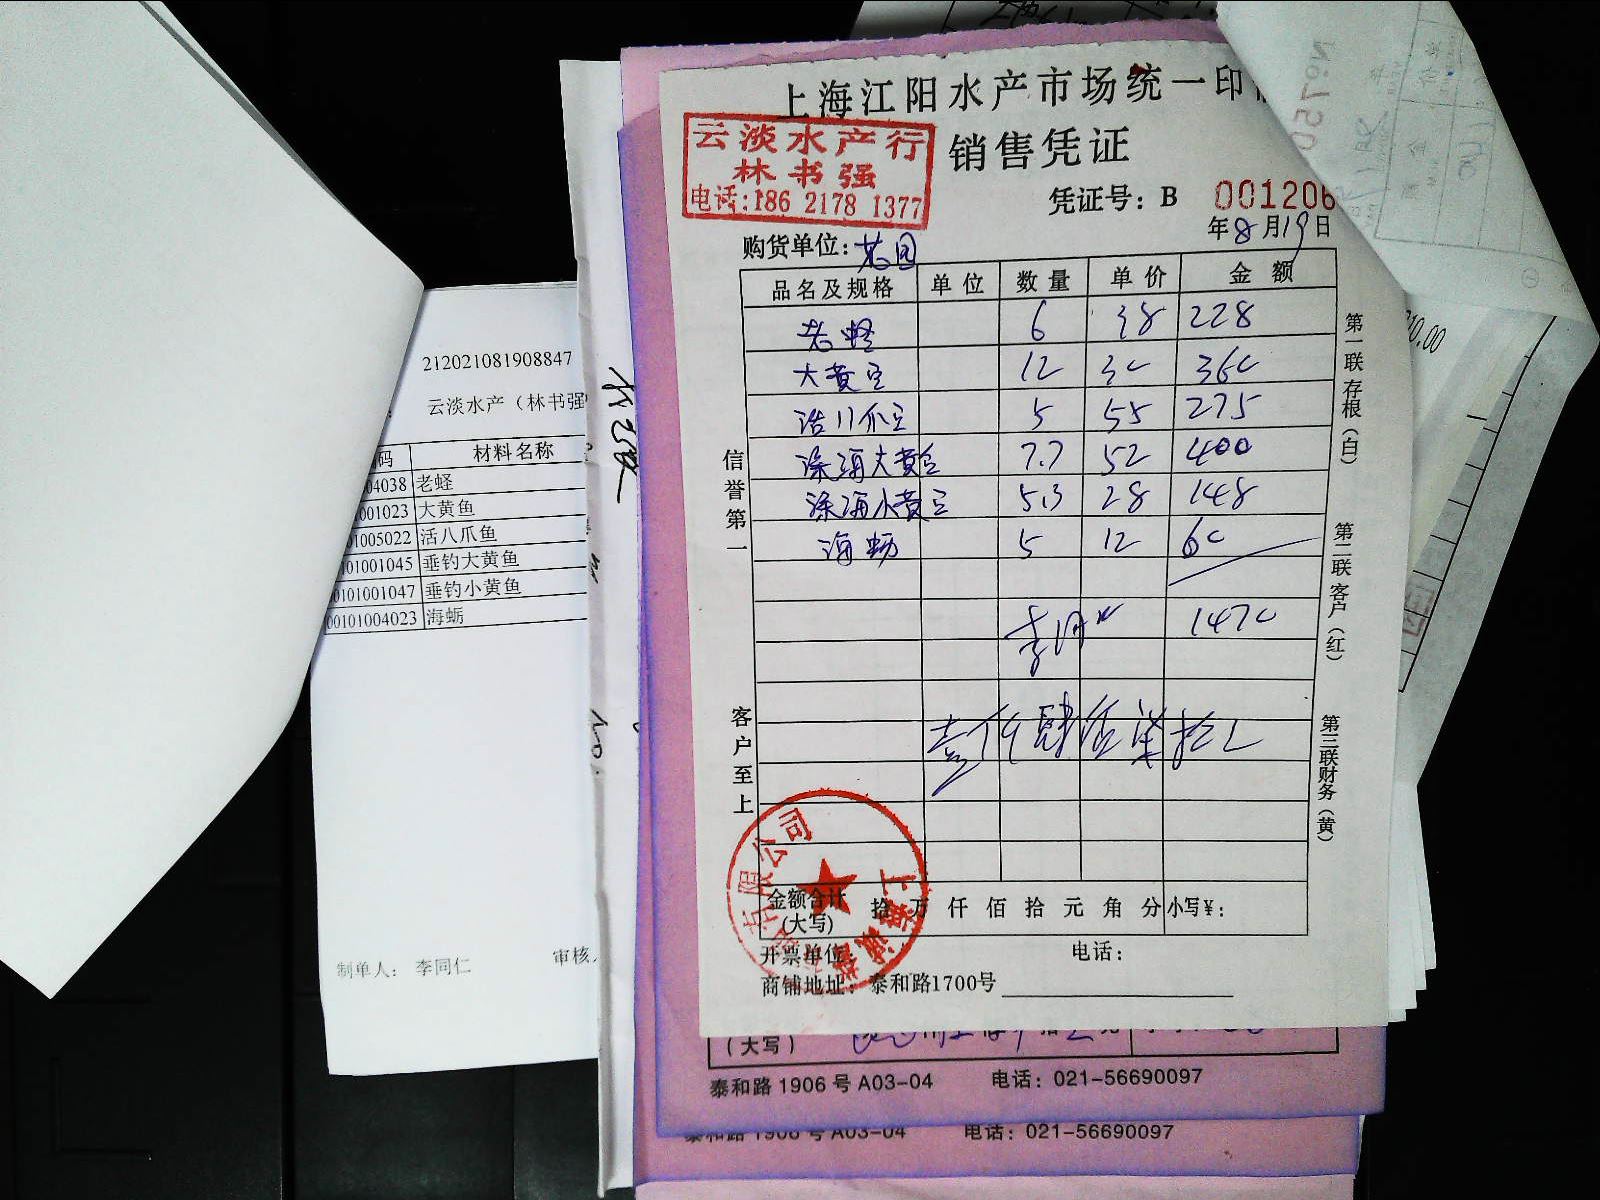 上海江阳水产市场统一印
云淡水产行
林书强
电话:186 2178 1377
销售凭证
凭证号: B 001206
年8月19日
购货单位:
品名及规格 单位 数量 单价 金额
老蛏 6 38 228
大黄鱼 12 30 360
活八爪鱼 5 55 275
深海大黄鱼 7.7 52 400
深海小黄鱼 5.3 28 148
海蛎 5 12 60
1470
壹仟肆佰柒拾元
信誉第一
客户至上
第一联存根(白)
第二联客户(红)
第三联财务(黄)
金额合计
(大写) 拾 万 仟 佰 拾 元 角 分 小写¥:
开票单位: 电话:
商铺地址: 泰和路1700号
有限公司
上海
(大写)
泰和路 1906 号 A03-04 电话: 021-56690097
泰和路 1906 号 A03-04 电话: 021-56690097
212021081908847
云淡水产(林书强
码 材料名称
04038 老蛏
001023 大黄鱼
01005022 活八爪鱼
0101001045 垂钓大黄鱼
00101001047 垂钓小黄鱼
00101004023 海蛎
制单人: 李同仁 审核人
No:750